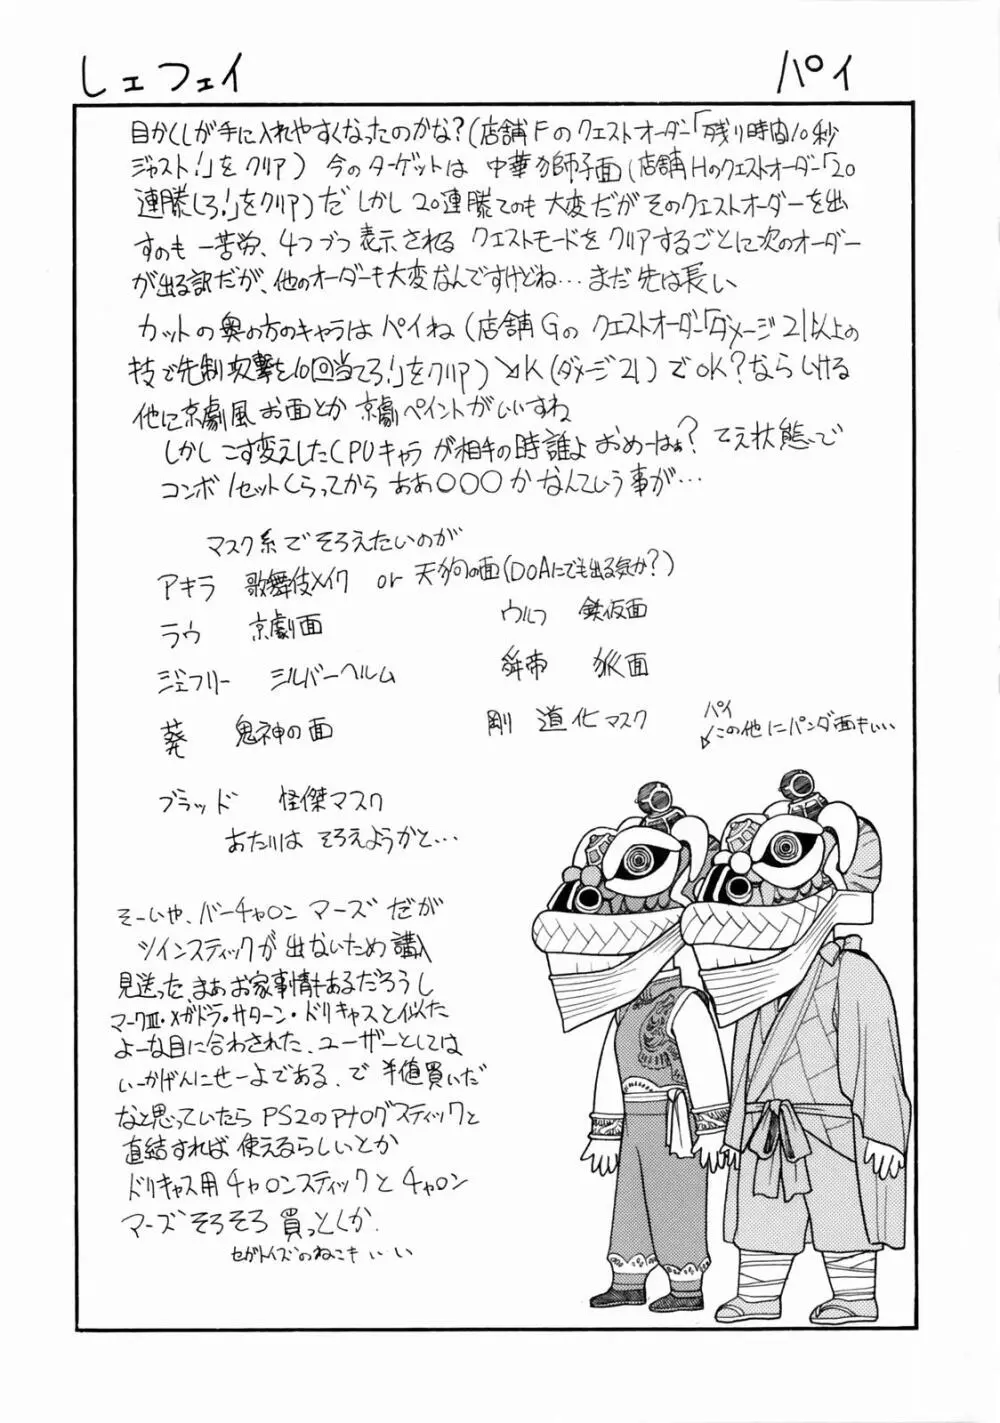 しェフェイ
パイ
目かくしが手に入れやすくなったのかな?(店舗Fのクエストオーダー「残り時間10秒
ジャスト!」をクリア) 今のターゲットは 中華獅子面(店舗Hのクエストオーダー「20
連勝しろ!」をクリア)だ しかし20連勝てのも大変だがそのクエストオーダーを出
すのも 一苦労、4つづつ 表示される クエストモードをクリアするごとに次のオーダー
が出る訳だが、他のオーダーも大変なんですけどね…まだ先は長い
カットの奥の方のキャラは パイね (店舗Gの クエストオーダー「ダメージ21以上の
技で先制攻撃を10回当てろ!」をクリア) ↘K(ダメージ21)でOK?ならいける
他に京劇風お面とか 京劇ペイントがいいすね
しかし こす変えしたCPUキャラが相手の時誰よ おめーはぁ? てえ状態で
コンボ1セットくらってから ああ○○○か なんていう事が…
マスク系でそろえたいのが
アキラ 歌舞伎メイク or 天狗の面(DOAにでも出る気か?)
ラウ 京劇面
ウルフ 鉄仮面
ジェフリー シルバーヘルム
舜帝 狐面
葵 鬼神の面
剛 道化マスク
パイ
↙この他にパンダ面もいい…
ブラッド 怪傑マスク
あたりは そろえようかと…
そーいや、バーチャロン マーズ だが
ツインスティックが 出ないため 購入
見送った、まぁお家事情もあるだろうし
マークⅢ・メガドラ・サターン・ドリキャスと似た
よーな目に合わされた、ユーザーとしては
いーかげんにせーよである、で 半値買いだ
なと思っていたら PS2のアナログスティックと
直結すれば 使えるらしいとか
ドリキャス用チャロンスティックと チャロン
マーズ そろそろ 買っとくか.
セガトイズのねこもいい